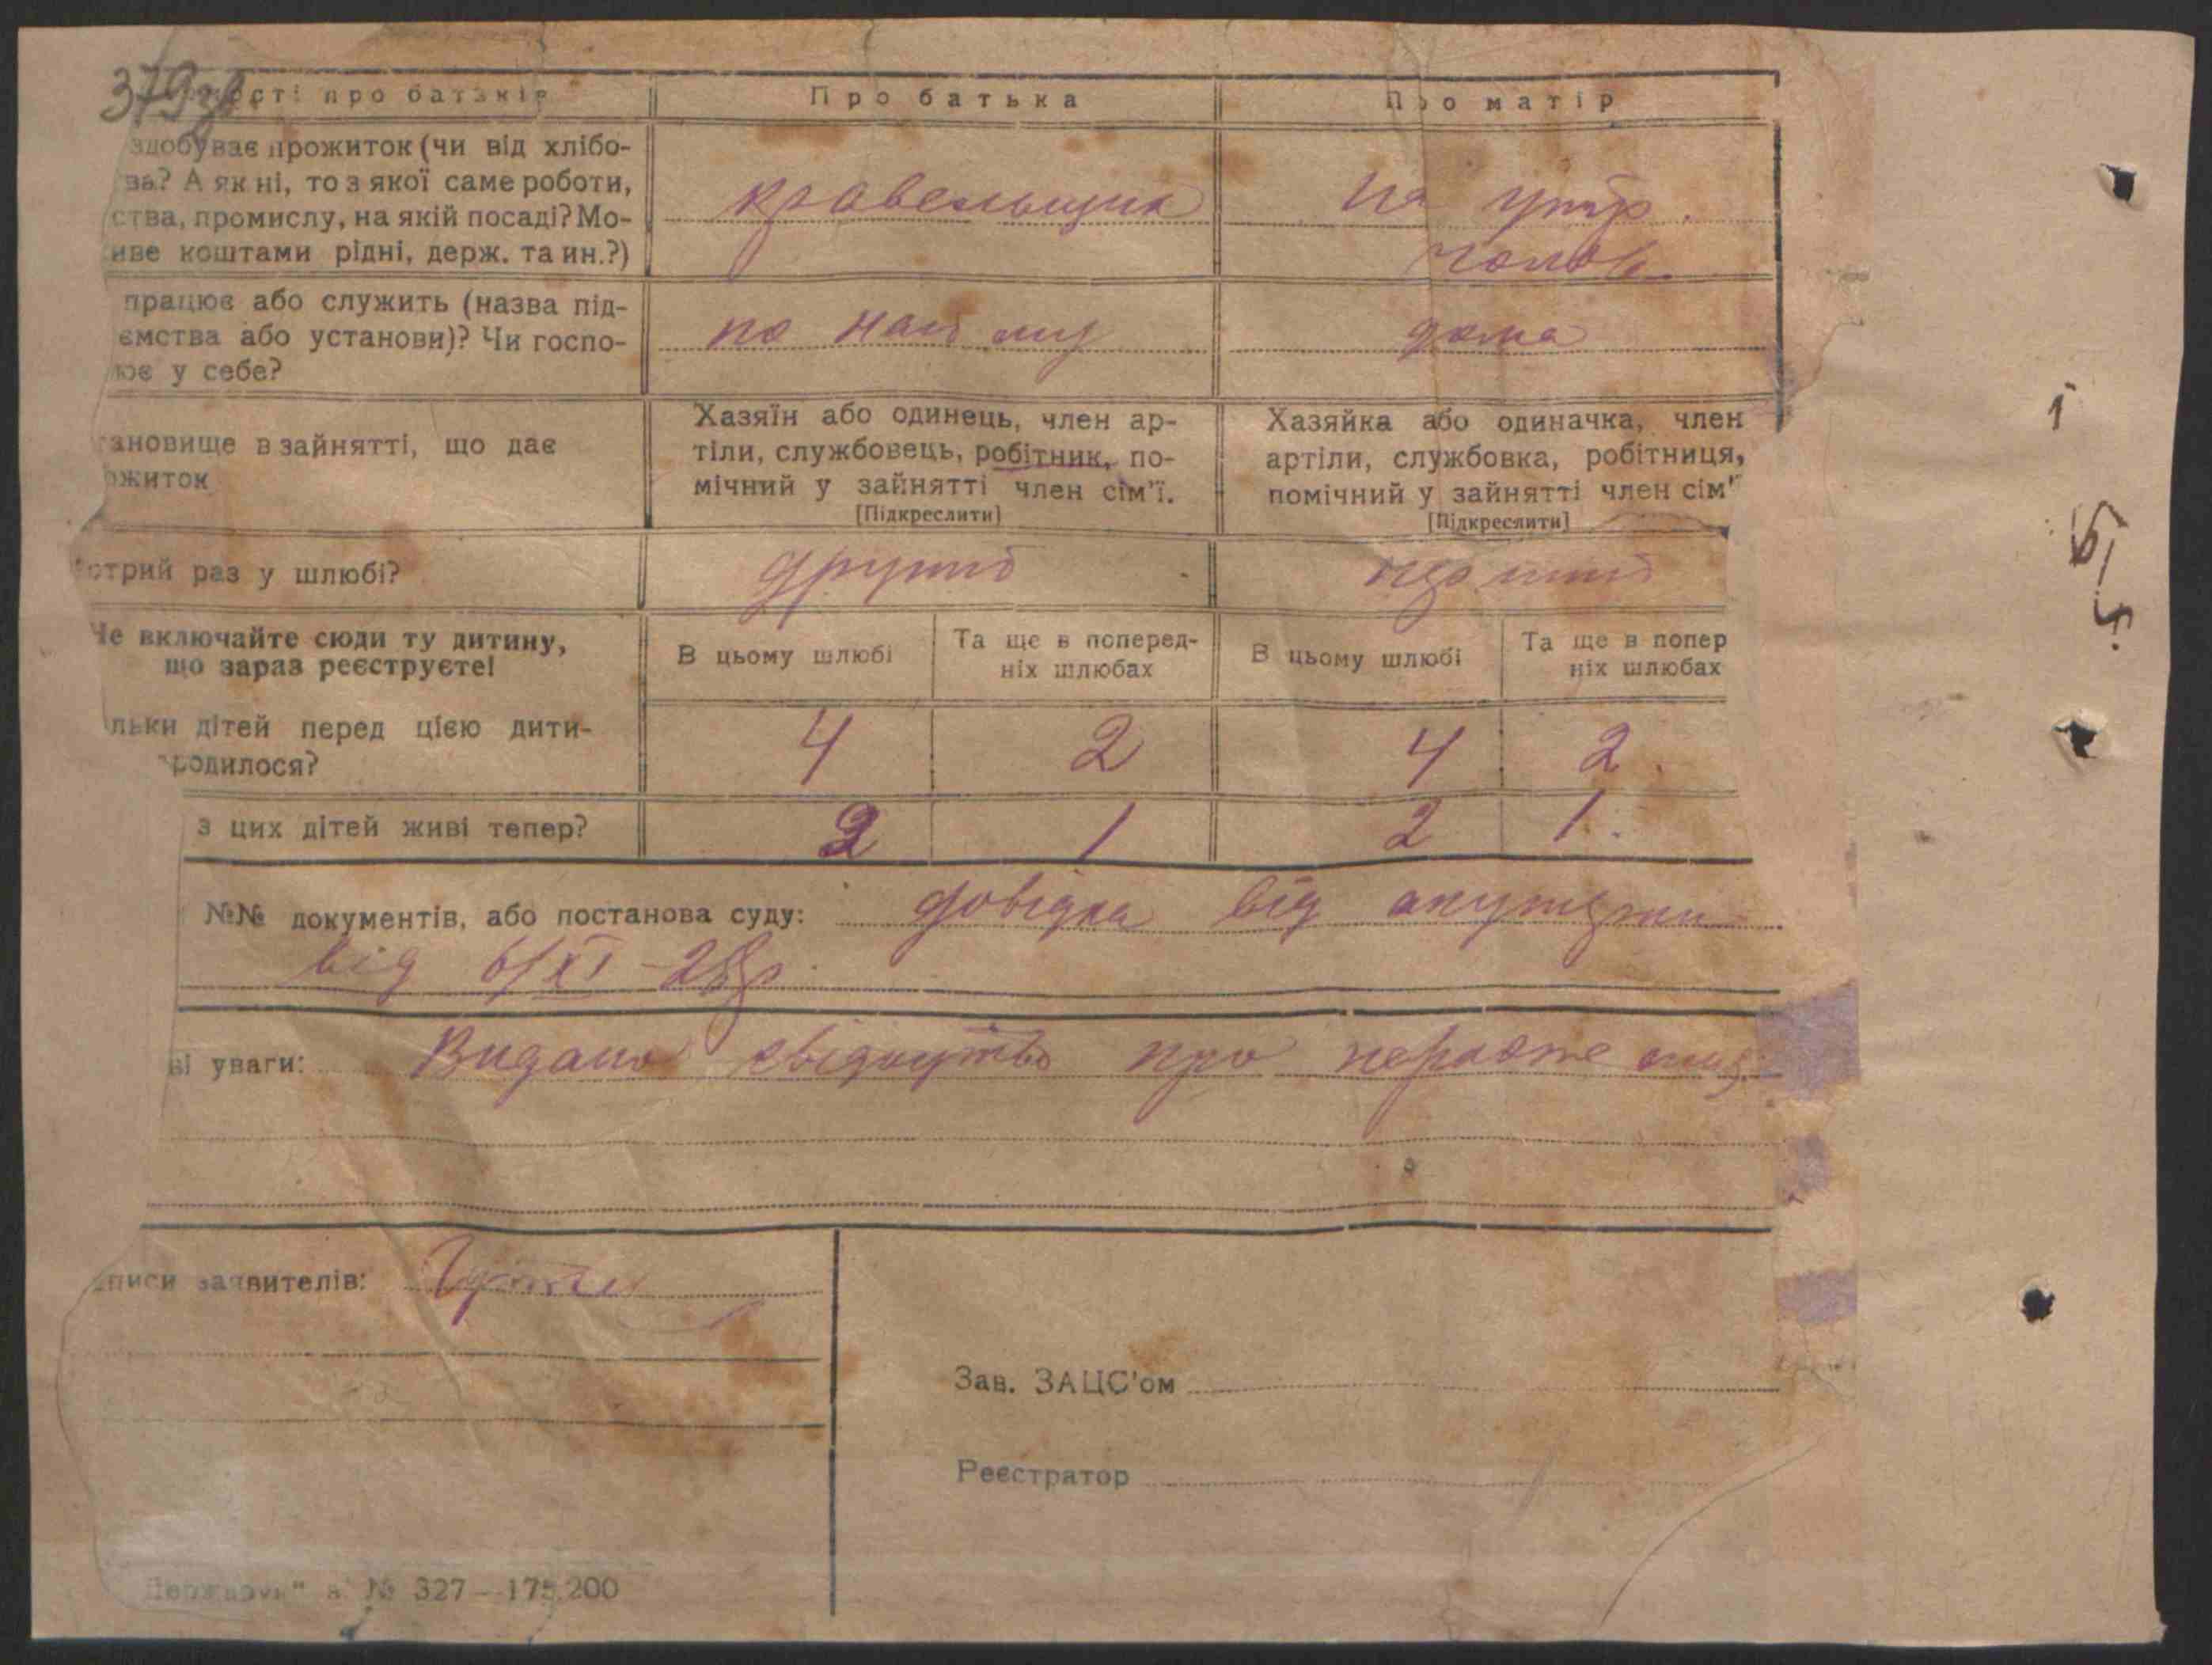 379зв
ості про батьків
Про батька
Про матір
здобуває прожиток (чи від хлібо-
ва? А як ні, то з якої саме роботи,
ства, промислу, на якій посаді? Мо-
иве коштами рідні, держ. та ин.?)
кравельщик
на утр.
чолов.
працює або служить (назва під-
ємства або установи)? Чи госпо-
ює у себе?
по найму
дома
тановище в зайнятті, що дає
ожиток
Хазяїн або одинець, член ар-
тіли, службовець, робітник, по-
мічний у зайнятті член сім'ї.
[Підкреслити]
Хазяйка або одиначка, член
артіли, службовка, робітниця,
помічний у зайнятті член сім'
[Підкреслити]
отрий раз у шлюбі?
другий
перший
Не включайте сюди ту дитину,
що зараз реєструєте!
В цьому шлюбі
Та ще в поперед-
ніх шлюбах
В цьому шлюбі
Та ще в попер
ніх шлюбах
льки дітей перед цією дити-
родилося?
4
2
4
2
з цих дітей живі тепер?
2
1
2
1.
№№ документів, або постанова суду: довідка від акушерки
від 6/XI-28р.
ві уваги: Видано свідоцтво про
писи заявителів:
Зав. ЗАЦС'ом
Реєстратор
№ 327—175.200